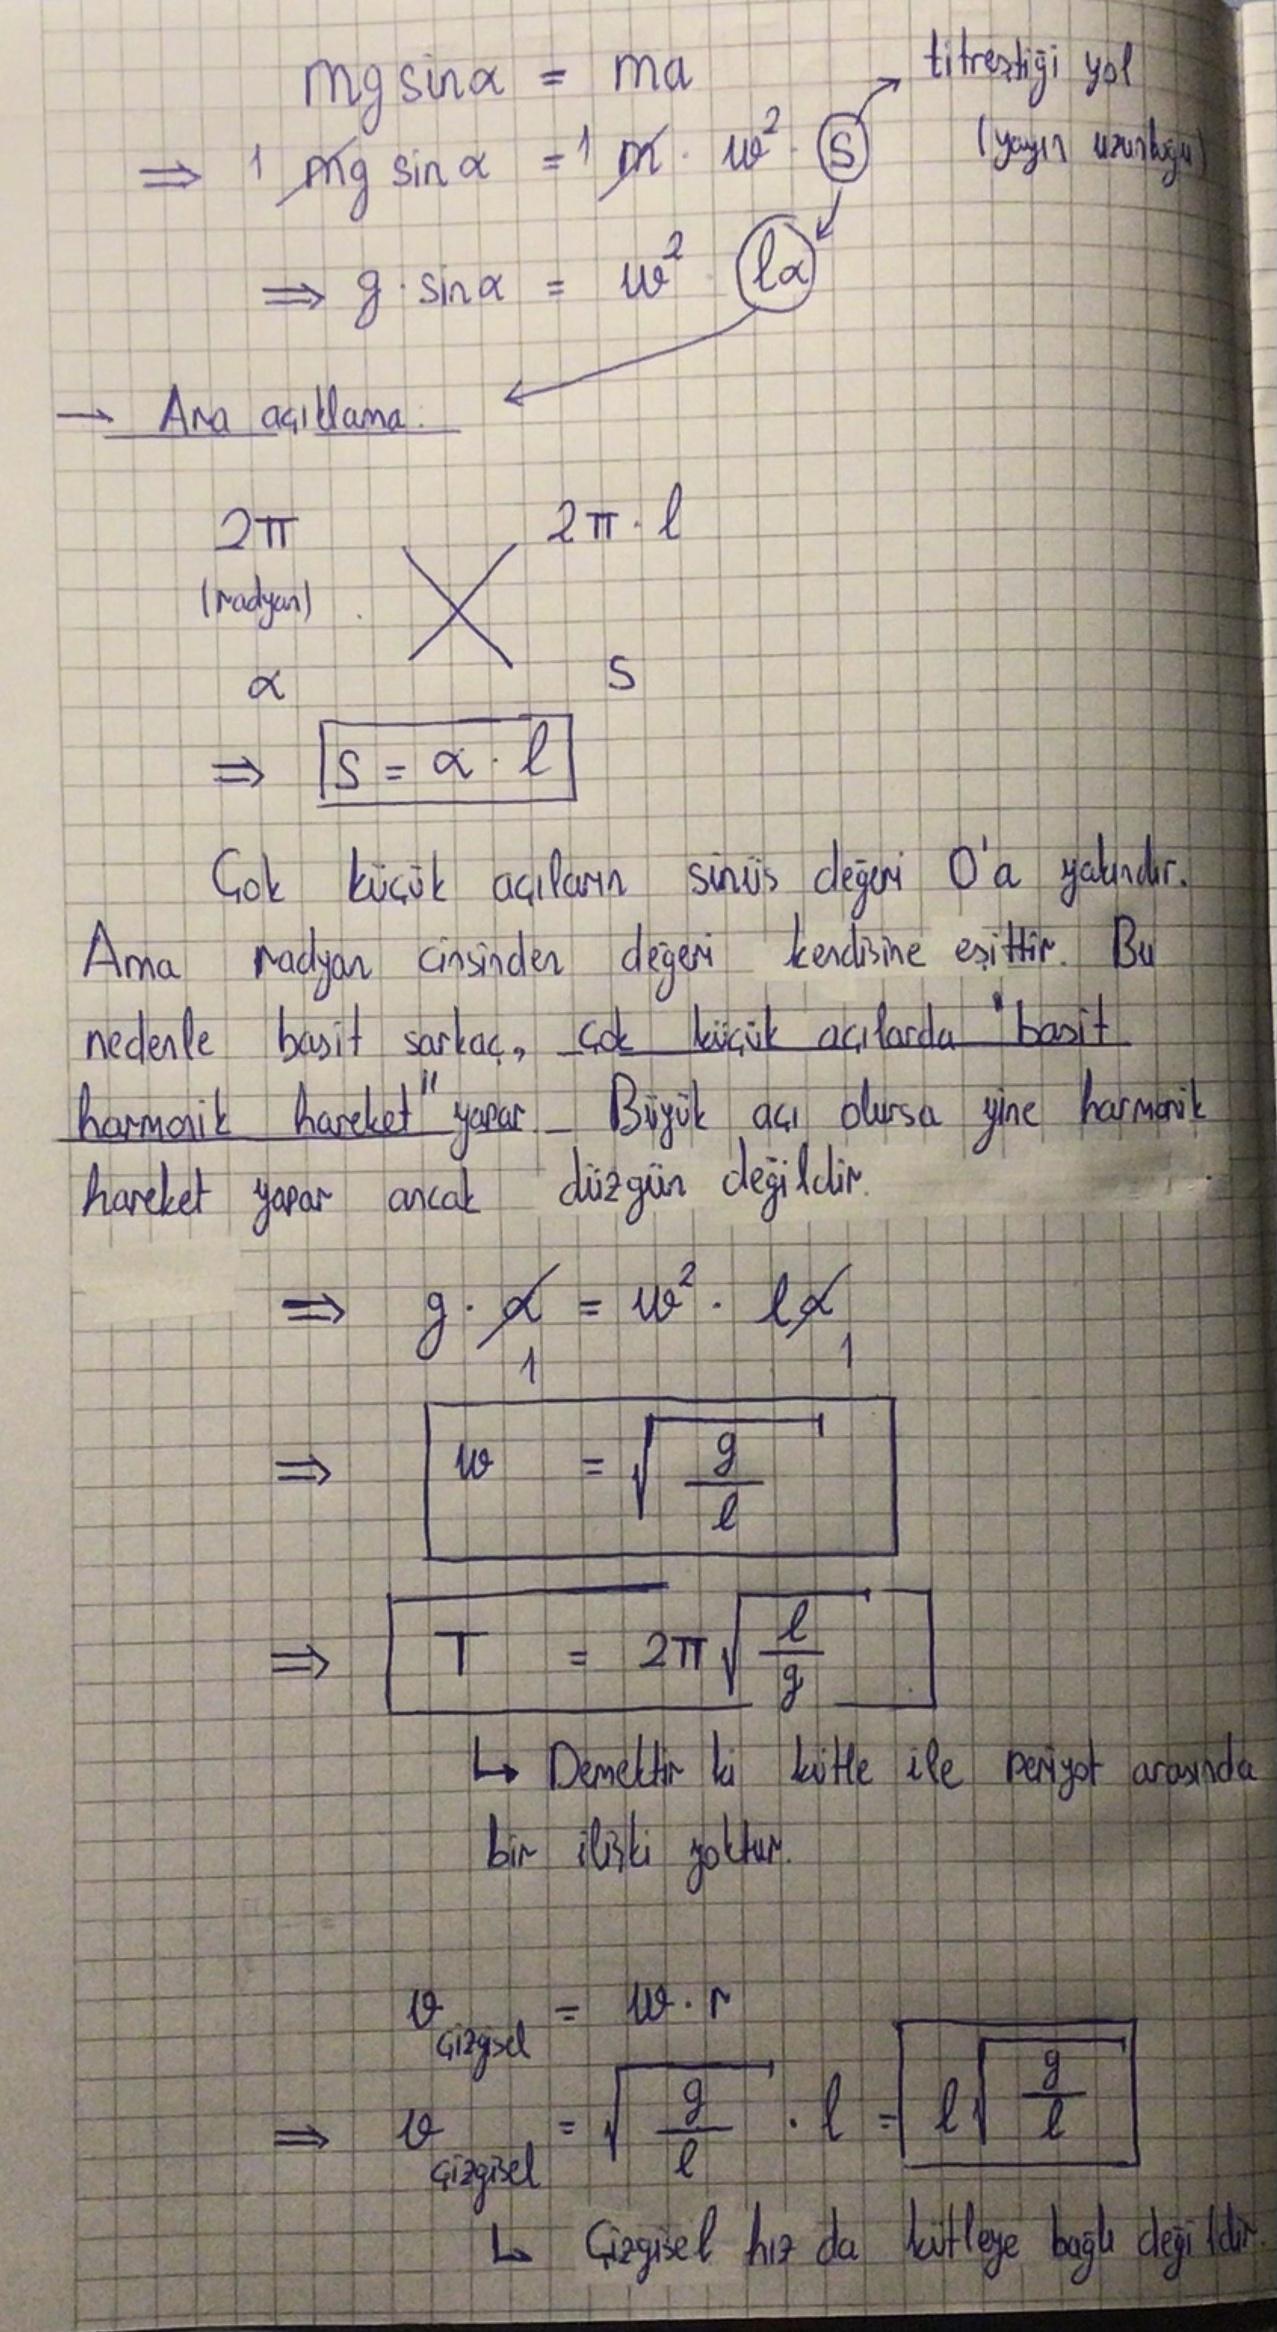 mg sinα = ma
titreştiği yol
⇒ 1 mg sinα = 1 m · w² · S (yayın uzunluğu)
⇒ g · sinα = w² · lα
→ Ara açıklama:
2π 2π · l
(radyan)
α S
⇒ S = α · l
Çok küçük açıların sinüs değeri 0'a yakındır.
Ama radyan cinsinden değeri kendisine eşittir. Bu
nedenle basit sarkaç, çok küçük açılarda "basit
harmonik hareket" yapar. Büyük açı olursa yine harmonik
hareket yapar ancak düzgün değildir.
⇒ g · α = w² · lα
1 1
⇒ w = √(g/l)
⇒ T = 2π√(l/g)
↳ Demektir ki kütle ile periyot arasında
bir ilişki yoktur.
v çizgisel = w · r
⇒ v çizgisel = √(g/l) · l = l√(g/l)
↳ Çizgisel hız da kütleye bağlı değildir.